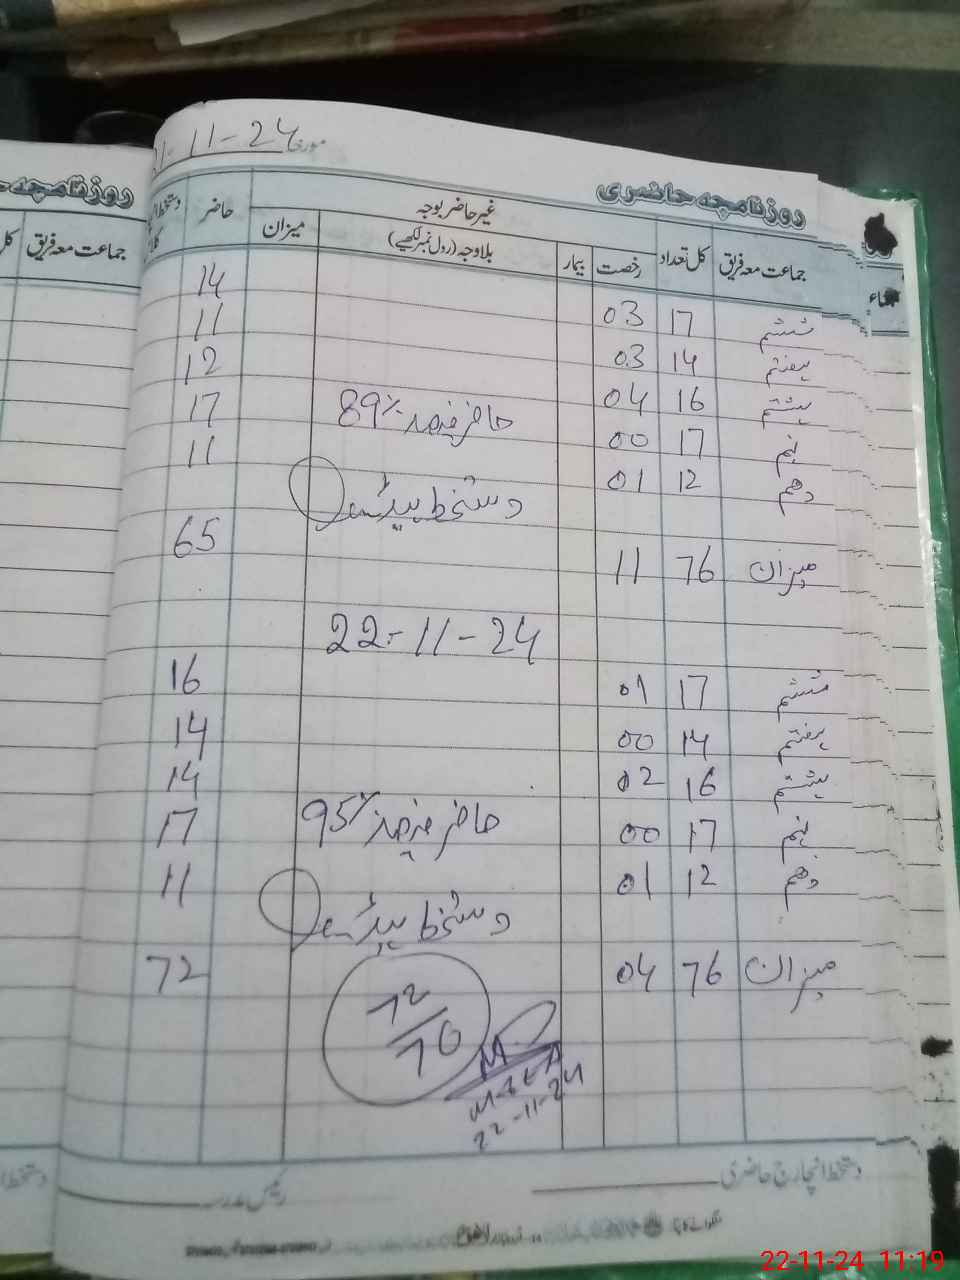 مورخہ 21-11-24
روزنامچہ حاضری
روزنامچہ حا
جماعت معہ فریق کل تعداد رخصت بیمار غیر حاضر بوجہ بلاوجہ (رول نمبر لکھیے) میزان حاضر
جماعت معہ فریق
ششم 17 03 14
ہفتم 14 03 11
ہشتم 16 04 12
نہم 17 00 17
حاضر فیصد 89%
دهم 12 01 11
دستخط ہیڈ
میزان 76 11 65
22-11-24
ششم 17 01 16
ہفتم 14 00 14
ہشتم 16 02 14
نہم 17 00 17
حاضر فیصد 95%
دهم 12 01 11
دستخط ہیڈ
میزان 76 04 72
72/76
22-11-24
دستخط انچارج حاضری رئیس مدرسہ
22-11-24 11:19